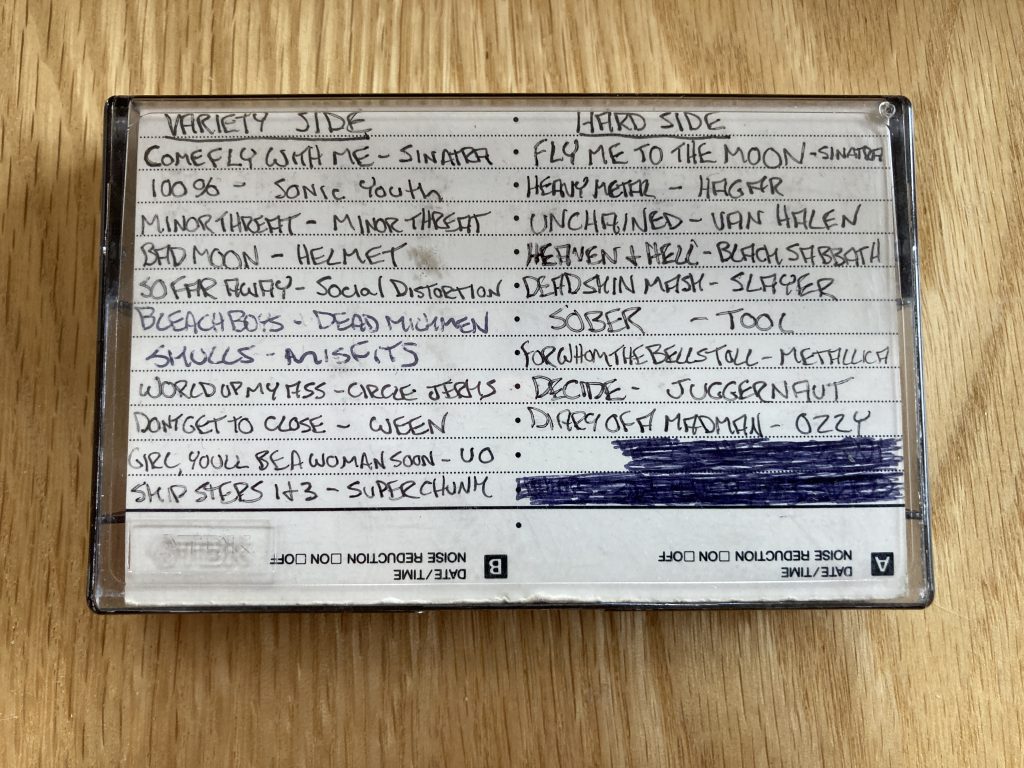 VARIETY SIDE
COME FLY WITH ME - SINATRA
100% - SONIC YOUTH
MINOR THREAT - MINOR THREAT
BAD MOON - HELMET
SO FAR AWAY - SOCIAL DISTORTION
BLEACH BOYS - DEAD MILKMEN
SKULLS - MISFITS
WORLD UP MY ASS - CIRCLE JERKS
DONT GET TO CLOSE - WEEN
GIRL, YOULL BE A WOMAN SOON - UO
SKIP STEPS 1 & 3 - SUPERCHUNK
• HARD SIDE
• FLY ME TO THE MOON - SINATRA
• HEAVY METAL - HAGAR
• UNCHAINED - VAN HALEN
• HEAVEN & HELL - BLACK SABBATH
• DEAD SKIN MASK - SLAYER
• SOBER - TOOL
• FOR WHOM THE BELLS TOLL - METALLICA
• DECIDE - JUGGERNAUT
• DIARY OF A MADMAN - OZZY
A
DATE/TIME
NOISE REDUCTION □ ON □ OFF
B
DATE/TIME
NOISE REDUCTION □ ON □ OFF